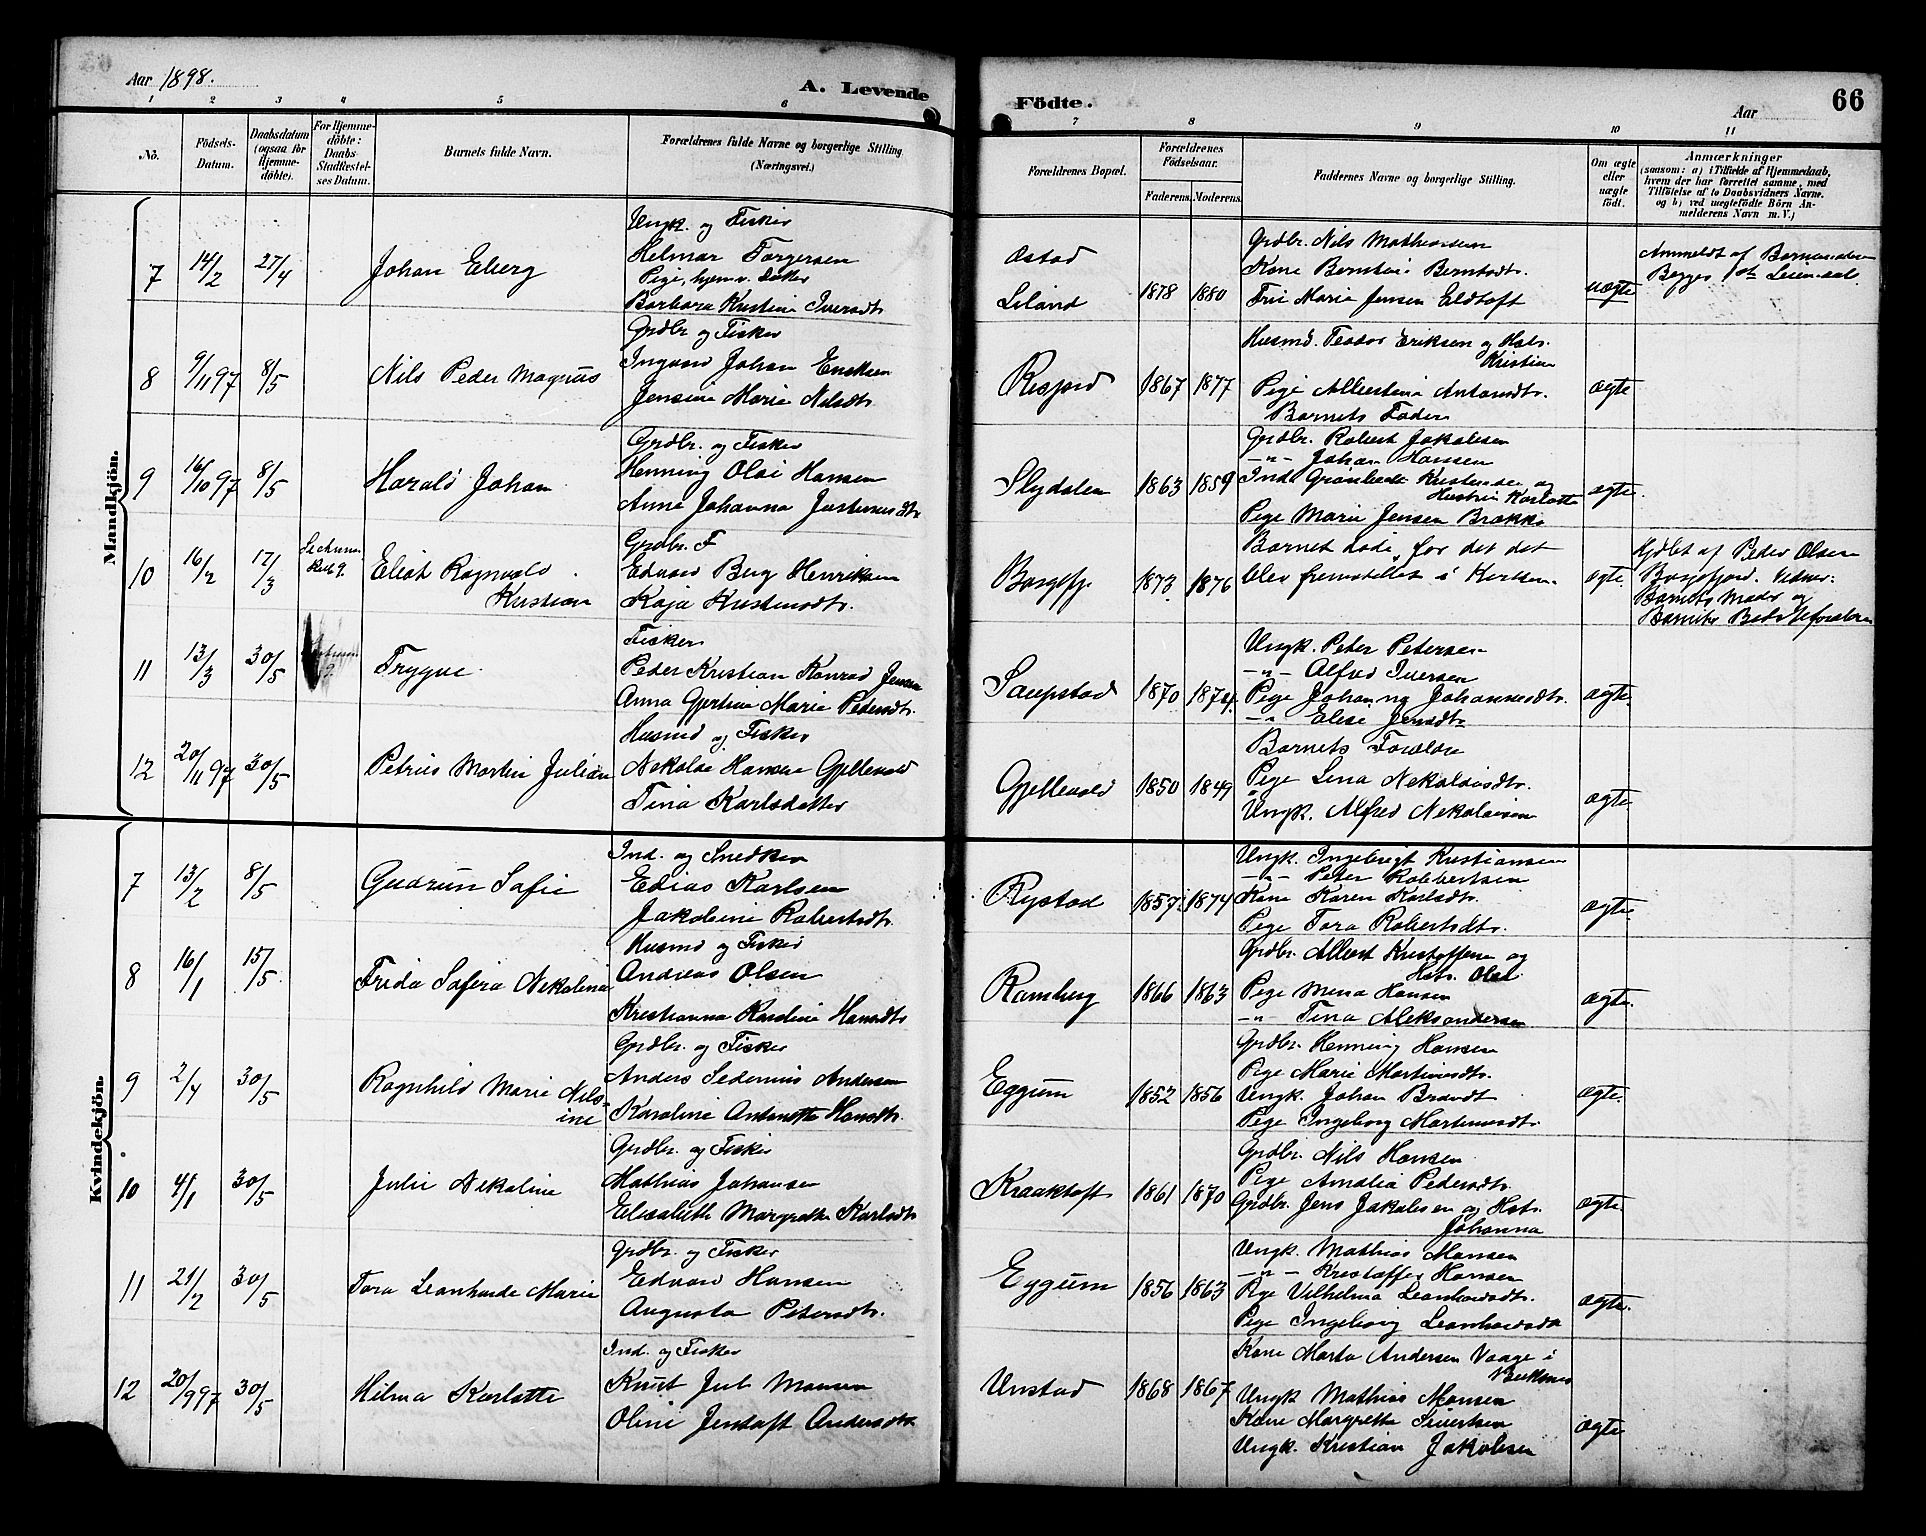 Aar 1898.
A. Levende
Födte.
Aar
66
1 2 3 4 5 6 7 8 9 10 11
No.
Födsels-
Datum.
Daabsdatum
(ogsaa for
Hjemme-
döbte).
For Hjemme-
döbte:
Daabs-
Stadfæstel-
ses Datum.
Barnets fulde Navn.
Forældrenes fulde Navne og borgerlige Stilling
(Næringsvei.)
Forældrenes Bopæl.
Forældrenes
Födselsaar.
Faderens. Moderens.
Faddernes Navne og borgerlige Stilling.
Om ægte
eller
uægte
födt.
Anmærkninger
(saasom: a) i Tilfælde af Hjemmedaab,
hvem der har forrettet samme, med
Tilföielse af to Daabsvidners Navne.
og b) ved uegtefödte Börn An-
melderens Navn m. V.)
Mandkjön.
7 14/2 27/4 Johan Eberg
Ungk. og Fisker
Helmar Torgersen
Pige, hjemv. Datter
Barbara Kristine Iversdtr
Østad
Liland
1878 1880
Grdbr. Nils Mathiassen
Kone Berntine Berntsdtr.
Frii Marie Jensen Eldtoft
uægte
Anmeldt af
8 9/11 97 8/5 Nils Peder Magnus
Grdbr og Fisker
Ingvard Johan Eriksen
Jensine Marie Nilsdtr.
1867 1877
Husmd. Teodor Eriksen og Hstr.
Kristine
Pige Albertine Antonsdtr.
Barnets Fader
ægte
9 16/10 97 8/5 Harald Johan
Grdbr. og Fisker
Henning Olai Hansen
Anne Johanna Justnesdtr
Slydalen
1863 1859
Grdbr. Robert Jakobsen
-"- Johan Hansen
Ind. Kristensen og
Hustru Karlotte
Pige Marie Jensen Brække
ægte.
10 16/2 17/3 Se Anm.
Rub 9.
Eliot Ragnvald
Kristian
Grdbr. F
Edvard Berg Henriksen
Kaja Kristensdtr.
Borgefj.
1873 1876
Barnet döde, för det
blev fremstillet i Kirken.
ægte.
Hjdbt af Peder Olsen
Borgefjord. Vidner:
Barnets Moder og
Barnets Bedsteforældre
11 13/3 30/5 Trygve.
Fisker
Peder Kristian Konrad Jensen
Anna Gjertine Marie Pedersdtr.
Saupstad
1870 1874.
Ungk. Peter Petersen
-"- Alfred Iversen
Pige Johanna Johannesdtr.
-"- Elise Jensdtr
ægte.
12 20/11 97 30/5 Petrus Martin Julian
Husmd og Fisker
Nekolai Hansen Gjellevold
Tina Karlsdatter
Gjellevold
1850 1849
Barnets Forældre
Pige Lena Nekolaisdtr.
Ungk. Alfred Nekolaisen
ægte.
Kvindekjön.
7 13/2 8/5 Gudrun Sofie
Ind. og Snedker
Edias Karlsen
Jakobine Robertsdtr.
Rystad
1857 1874
Ungk. Ingebrigt Kristiansen
-"- Peter Robbertsen
Kone Karen Karlsdtr.
Pige Tora Robertsdtr.
ægte.
8 16/1 15/5 Frida Sofira Nekolena
Husmd og Fisker
Andreas Olsen
Kristianna Karoline Hansdtr
Ramberg
1866 1863
Grdbr. Albert Kristoffersen og
Hstr. Olal
Pige Mena Hansen
-"- Tina Aleksandersen
ægte.
9 2/4 30/5 Ragnhild Marie Nils-
ine
Grdbr. og Fisker
Anders Sedenius Andersen
Karoline Antonette Hansdtr.
Eggum
1852 1856
Grdbr. Henning Hansen
Pige Marie Martinusdtr.
Ungk. Johan Brandt
Pige Ingeborg Martinusdtr.
ægte.
10 4/1 30/5 Julie Nekoline
Grdbr. og Fisker
Mathias Johansen
Elisabeth Margrethe Karlsdtr
Kraaktoft
1861 1870
Grdbr. Nils Hansen
Pige Amalia Pedersdtr.
Grdbr. Jens Jakobsen og Hstr.
Johanna
ægte.
11 21/2 30/5 Tora Leonharde Marie
Grdbr. og Fisker
Edvard Hansen
Augusta Petersdtr.
Eggum
1856 1863
Ungk. Mathias Hansen
-"- Kristoffer Hansen
Pige Vilhelmina Leonhardsdtr.
Pige Ingeborg Leonhardsdtr
ægte.
12 20/9 97 30/5 Hilma Karlotte
Ind. og Fisker
Knut Jul Monsen
Oline Jentoft Andersdtr
Unstad
1868 1867
Kone Marta Andersen Vaage i
Buksnes
Ungk. Mathias Monsen
Kone Margrethe Sivertsen
Ungk. Kristian Jakobsen
ægte.